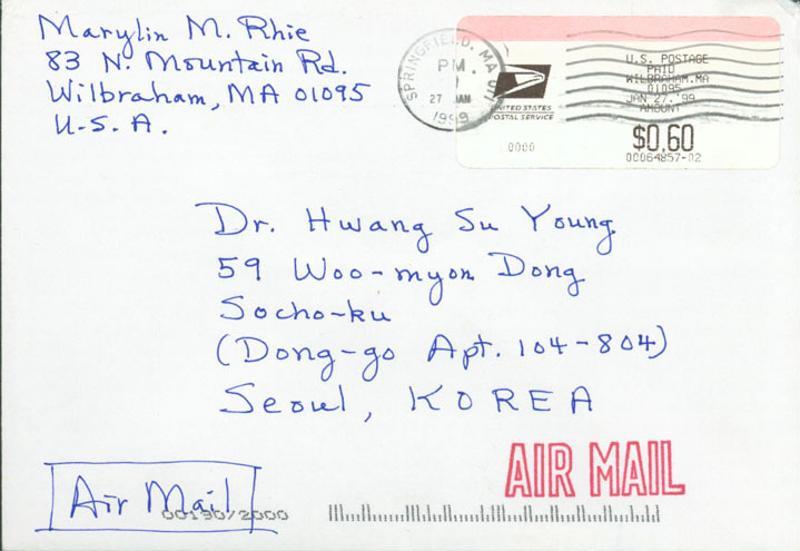 Marylin M. Rhie
83 N. Mountain Rd.
Wilbraham, MA 01095
U.S.A.
SPRINGFIELD, MA
PM
27 JAN
1999
UNITED STATES
POSTAL SERVICE
0000
U.S. POSTAGE
PAID
WILBRAHAM.MA
01095
JAN 27.'99
AMOUNT
$0.60
00064857-02
Dr. Hwang Su Young
59 Woo-myon Dong
Socho-ku
(Dong-go Apt. 104-804)
Seoul, KOREA
AIR MAIL
Air Mail
00190/2000